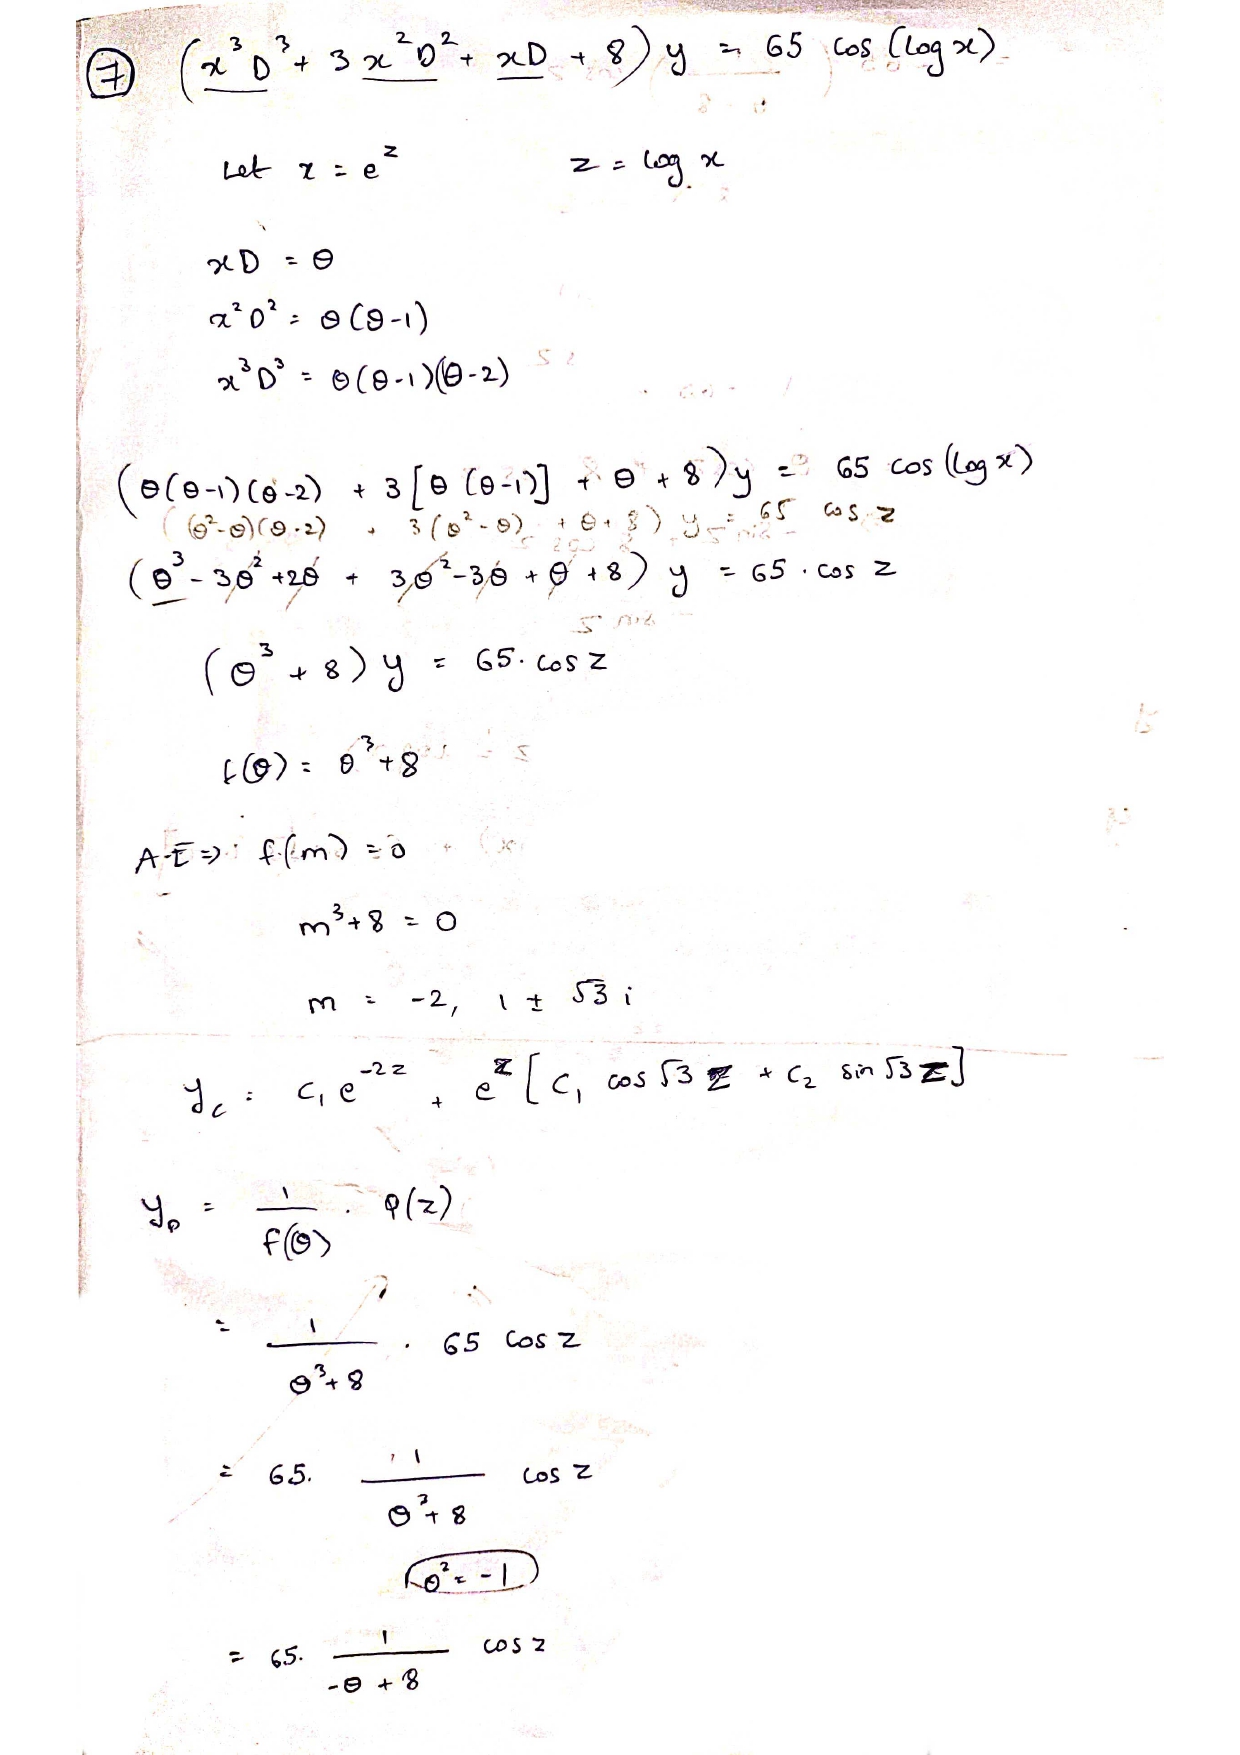 ⑦ (x³D³ + 3x²D² + xD + 8) y = 65 cos (log x)
Let x = e^z    z = log x
xD = θ
x²D² = θ(θ-1)
x³D³ = θ(θ-1)(θ-2)
(θ(θ-1)(θ-2) + 3[θ(θ-1)] + θ + 8) y = 65 cos (log x)
((θ²-θ)(θ-2) + 3(θ²-θ) + θ + 8) y = 65 cos z
(θ³ - 3θ² + 2θ + 3θ² - 3θ + θ + 8) y = 65 · cos z
(θ³ + 8) y = 65 · cos z
f(θ) = θ³ + 8
A.E ⇒ f(m) = 0
m³ + 8 = 0
m = -2, 1 ± √3 i
y_c = C₁ e^-2z + e^z [C₁ cos √3 z + C₂ sin √3 z]
y_p = 1/f(θ) · Q(z)
= 1/(θ³+8) · 65 cos z
= 65 · 1/(θ³+8) cos z
θ² = -1
= 65 · 1/(-θ+8) cos z